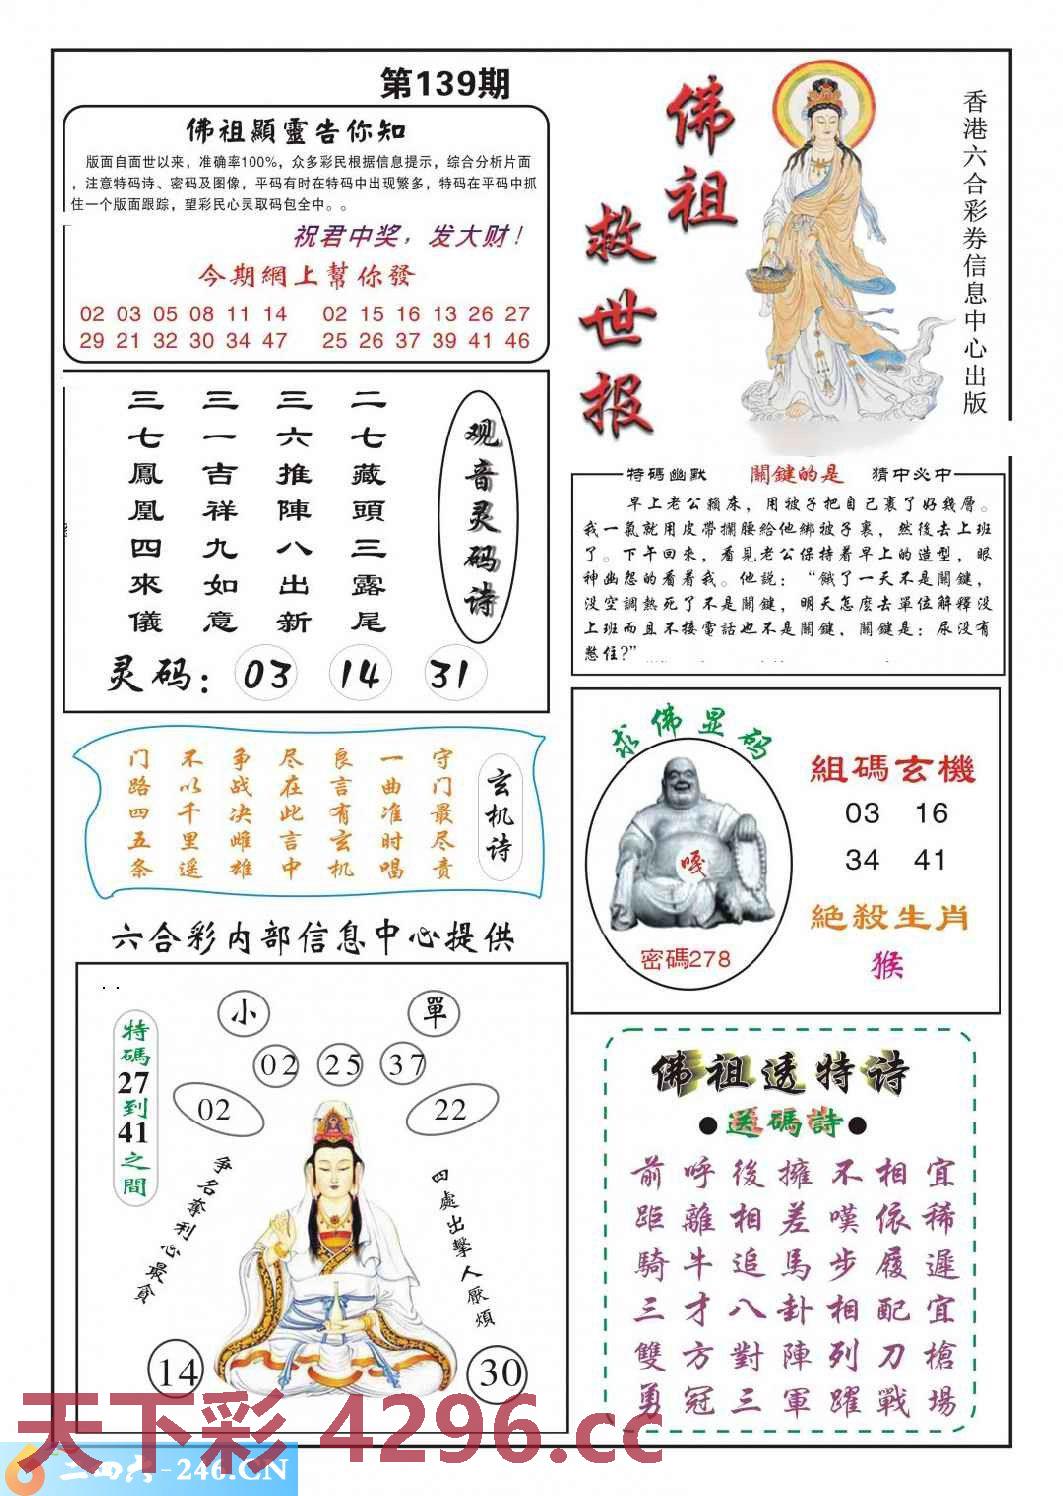 第139期
佛祖顯靈告你知
版面自面世以来，准确率100%，众多彩民根据信息提示，综合分析片面
，注意特码诗、密码及图像，平码有时在特码中出现繁多，特码在平码中抓
住一个版面跟踪，望彩民心灵取码包全中。。
祝君中奖，发大财！
今期網上幫你發
02 03 05 08 11 14 02 15 16 13 26 27
29 21 32 30 34 47 25 26 37 39 41 46
佛祖
救世报
香港六合彩券信息中心出版
观音灵码诗
二七藏頭三露尾
三六推陳八出新
三一吉祥九如意
三七鳳凰四來儀
灵码：03 14 31
特碼幽默 關鍵的是 猜中必中
早上老公賴床，用被子把自己裹了好幾層。
我一氣就用皮帶攔腰給他綁被子裏，然後去上班
了。下午回來，看見老公保持着早上的造型，眼
神幽怨的看着我。他說：“餓了一天不是關鍵，
沒空調熱死了不是關鍵，明天怎麼去單位解釋沒
上班而且不接電話也不是關鍵，關鍵是：尿沒有
憋住?”
玄机诗
守门最尽责
一曲准时唱
良言有玄机
尽在此言中
争战决雌雄
不以千里遥
门路四五条
求佛显码
嘎
密碼278
組碼玄機
03 16
34 41
絕殺生肖
猴
六合彩内部信息中心提供
特碼27到41之間
小 單
02 25 37
02 22
争名奪利心最貪
四處出擊人厭煩
14 30
佛祖透特诗
●送碼詩●
前呼後擁不相宜
距離相差嘆依稀
騎牛追馬步履遲
三才八卦相配宜
雙方對陣列刀槍
勇冠三軍躍戰場
天下彩 4296.cc
二四六-246.CN